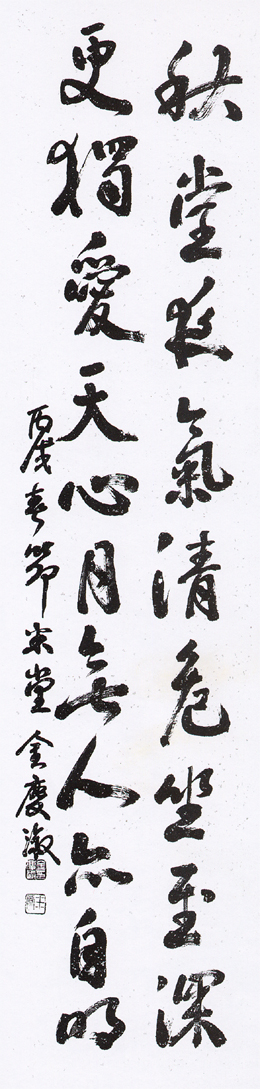 秋堂夜氣清危坐至深
更獨愛天心月無人亦自明
丙戌春節堂金慶